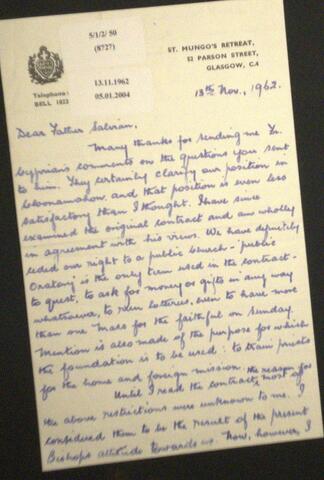 5/1/2/ 50
(8727)
13.11.1962
05.01.2004
Telephone:
BELL 1823
ST. MUNGO'S RETREAT,
52 PARSON STREET,
GLASGOW, C.4
13th Nov., 1962.
Dear Father Salvian,
Many thanks for sending me Fr.
Cyprian's comments on the questions you sent
to him. They certainly clarify our position in
Cloonamahon, and that position is even less
satisfactory than I thought. I have since
examined the original contract and am wholly
in agreement with his views. We have definitely
ceded our right to a public Church - 'public
Oratory' is the only term used in the contract -
to quest, to ask for money or gifts in any way
whatsoever, to run lotteries, even to have more
than one Mass for the faithful on Sunday.
Mention is also made of the purpose for which
the foundation is to be used: to train priests
for the home and foreign mission.
Until I read the contract, the reason for most of
the above restrictions were unknown to me. I
considered them to be the result of the present
Bishops attitude towards us. Now, however, I